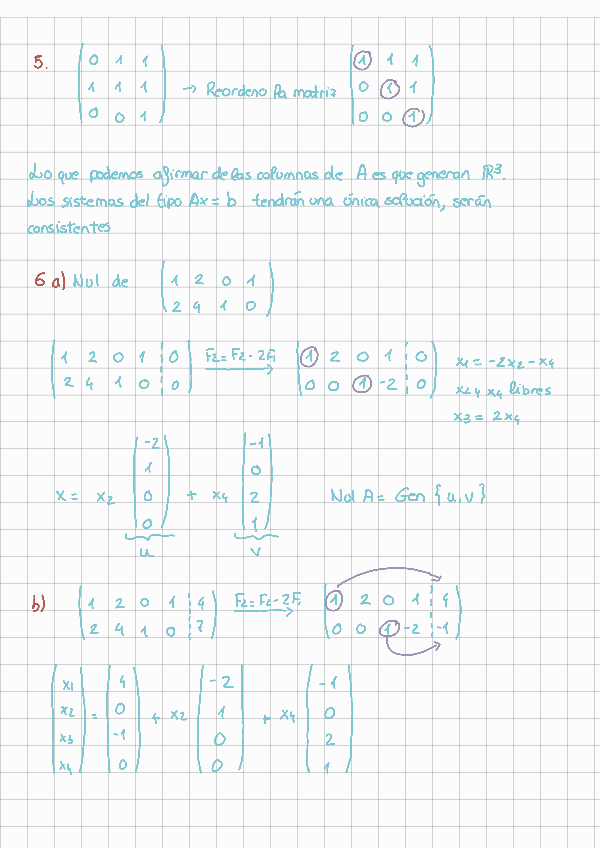 5. ( 0 1 1 ) ( 1 1 1 )
( 1 1 1 ) → Reordeno la matriz ( 0 1 1 )
( 0 0 1 ) ( 0 0 1 )
Lo que podemos afirmar de las columnas de A es que generan ℝ³.
Los sistemas del tipo Ax = b tendrán una única solución, serán
consistentes
6 a) Nul de ( 1 2 0 1 )
( 2 4 1 0 )
( 1 2 0 1 | 0 ) F2 = F2 - 2F1 ( 1 2 0 1 | 0 ) x1 = -2x2 - x4
( 2 4 1 0 | 0 ) → ( 0 0 1 -2 | 0 ) x2 y x4 libres
x3 = 2x4
( -2 ) ( -1 )
( 1 ) ( 0 )
x = x2 ( 0 ) + x4 ( 2 ) Nul A = Gen { u, v }
( 0 ) ( 1 )
u v
b) ( 1 2 0 1 | 4 ) F2 = F2 - 2F1 ( 1 2 0 1 | 4 )
( 2 4 1 0 | 7 ) → ( 0 0 1 -2 | -1 )
( x1 ) ( 4 ) ( -2 ) ( -1 )
( x2 ) = ( 0 ) + x2 ( 1 ) + x4 ( 0 )
( x3 ) ( -1 ) ( 0 ) ( 2 )
( x4 ) ( 0 ) ( 0 ) ( 1 )